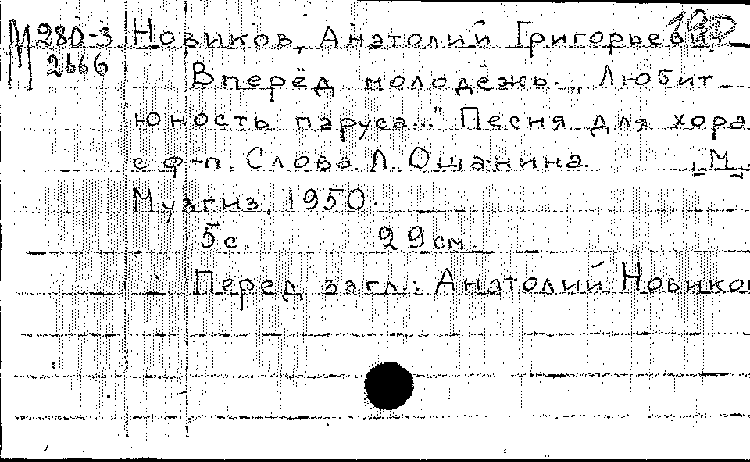 М 280-3 Новиков, Анатолий Григорьевич 190
2666 Вперёд молодежь. „Любит
юность паруса..." Песня для хора
с ф-п. Слова Л. Ошанина. М.,
Музгиз, 1950.
5 с. 29 см.
Перед загл.: Анатолий Новиков